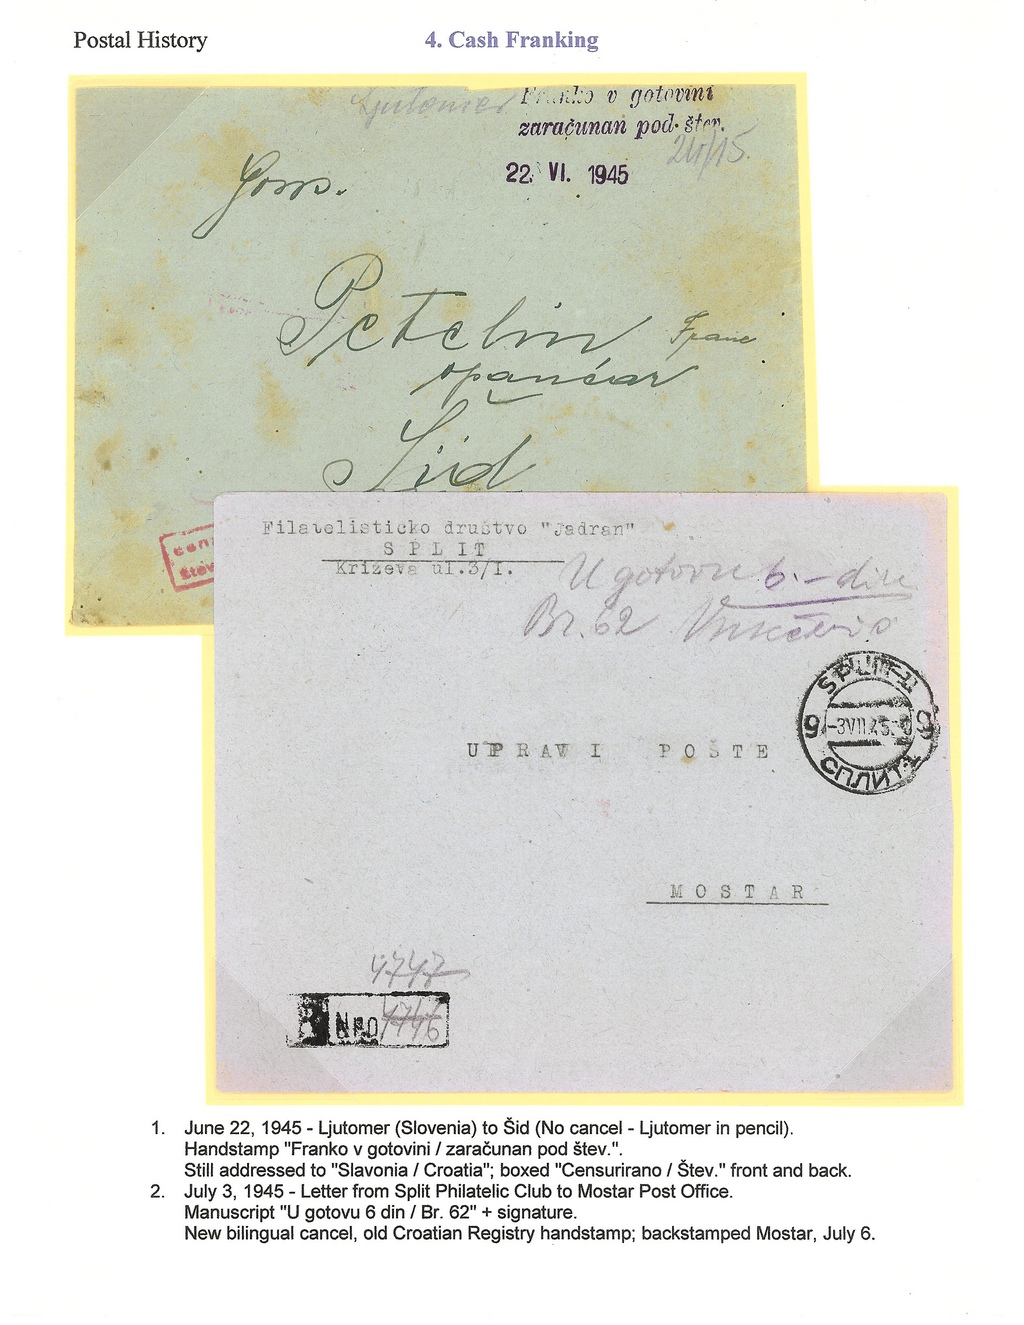 Postal History
4. Cash Franking
Ljutomer
Franko v gotovini
zaračunan pod štev.
24/15.
22. VI. 1945
Gosp.
Petelin Franc
opančar
Šid
Filatelisticko društvo "Jadran"
S P L I T
Križeva ul.3/I.
U gotovu 6.- din
Br. 62
SPLIT
9 -3VII.45. 9
СПЛИТ
UPRAVI POŠTE
M O S T A R
4747
R Nro
1. June 22, 1945 - Ljutomer (Slovenia) to Šid (No cancel - Ljutomer in pencil).
Handstamp "Franko v gotovini / zaračunan pod štev.".
Still addressed to "Slavonia / Croatia"; boxed "Censurirano / Štev." front and back.
2. July 3, 1945 - Letter from Split Philatelic Club to Mostar Post Office.
Manuscript "U gotovu 6 din / Br. 62" + signature.
New bilingual cancel, old Croatian Registry handstamp; backstamped Mostar, July 6.